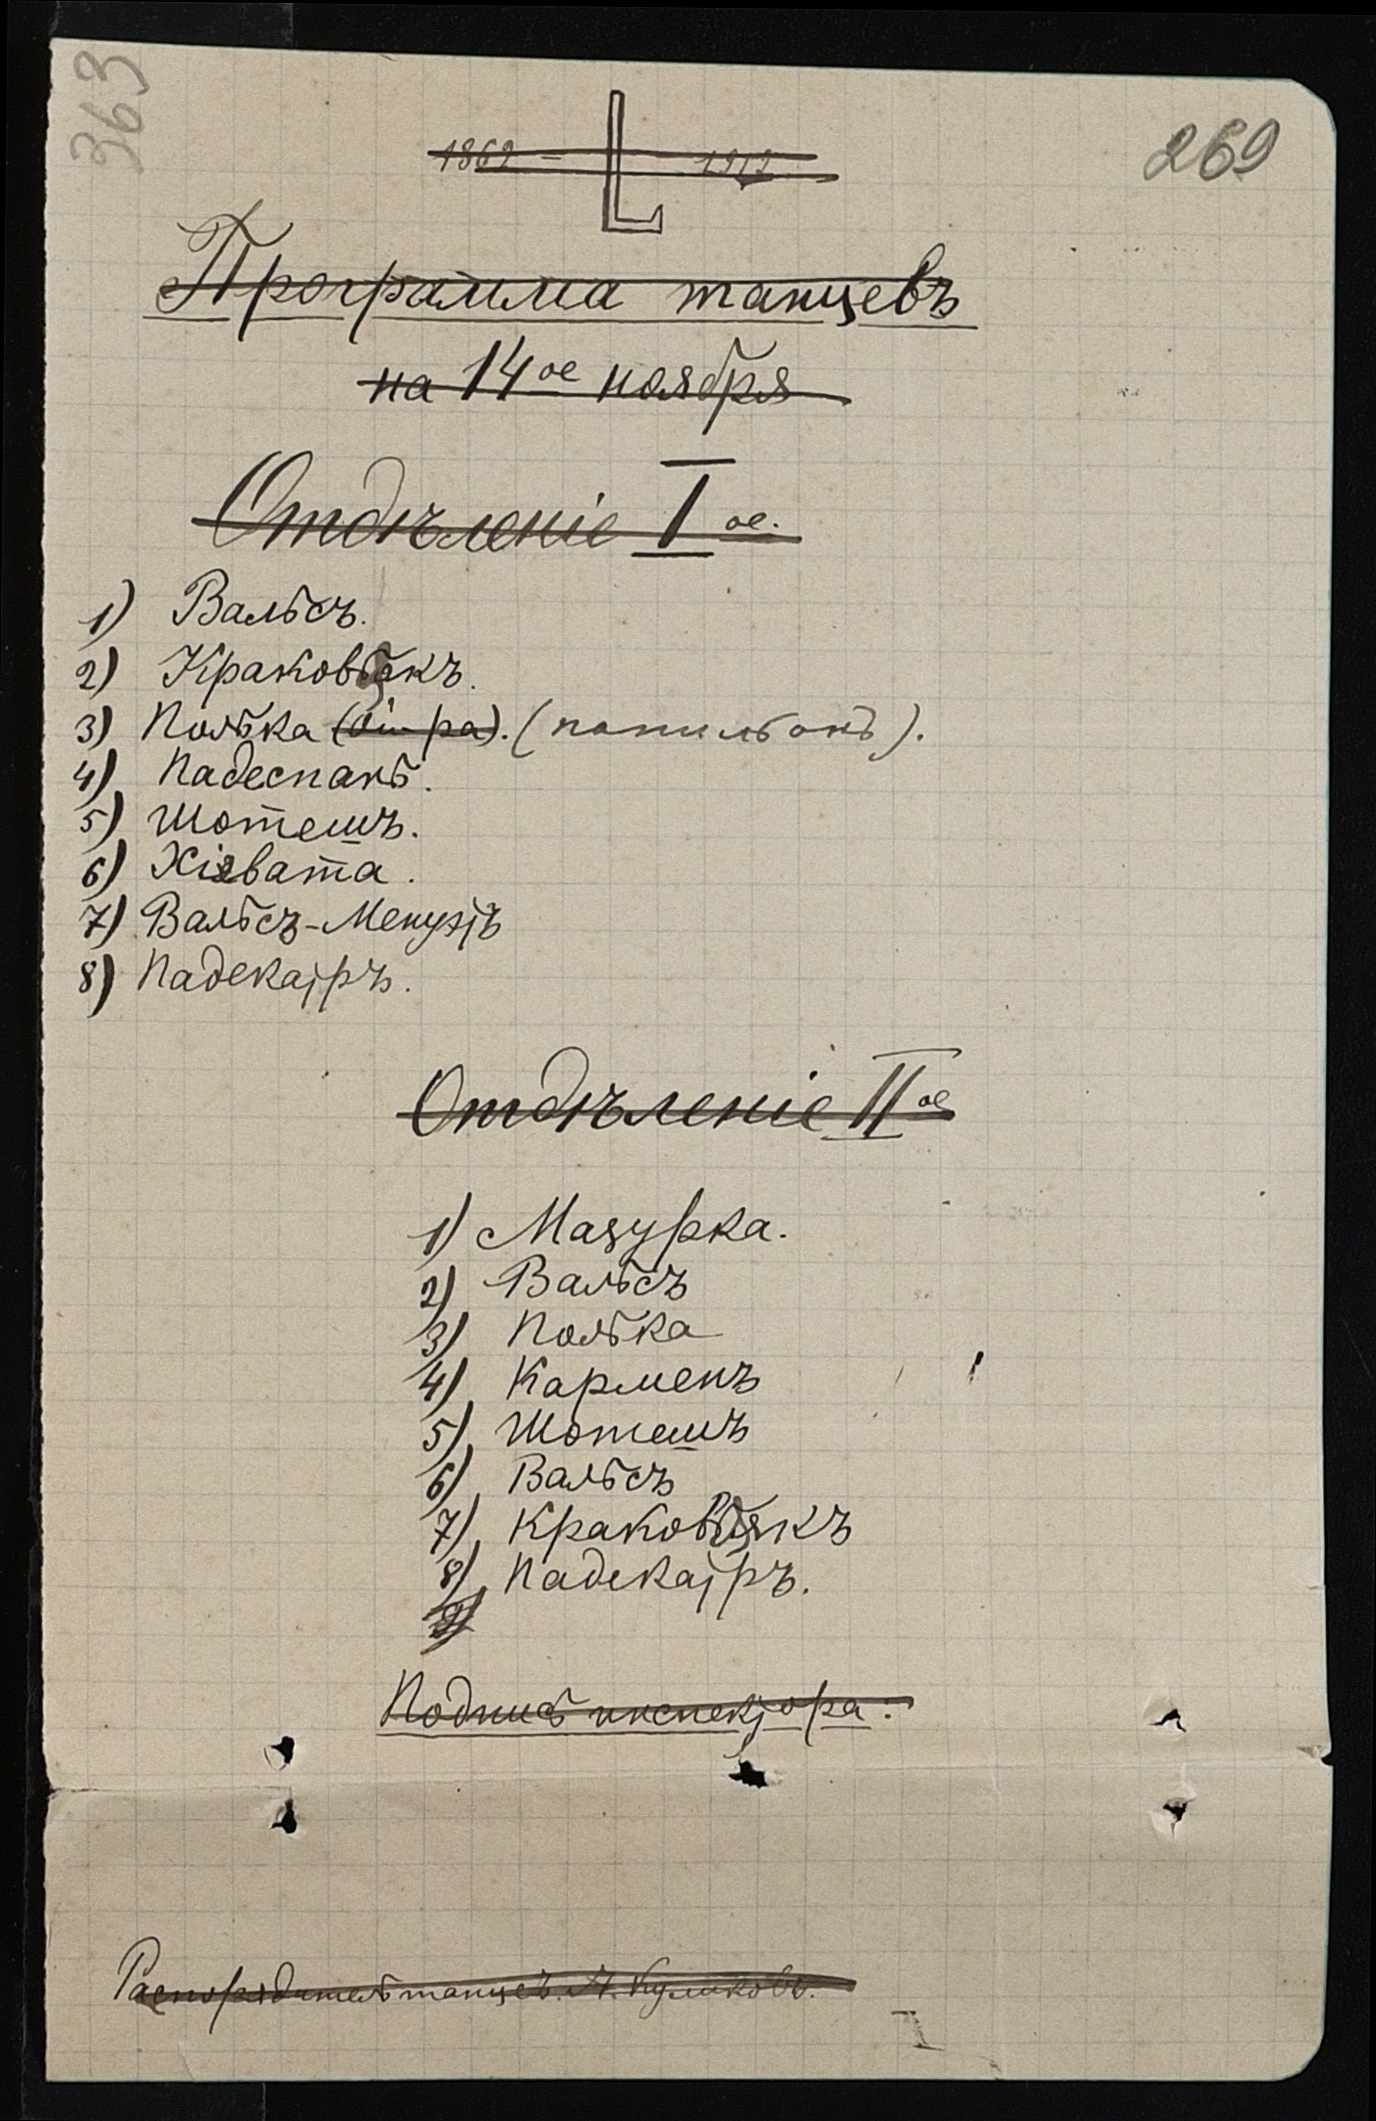 363
269
1862 - L 1912
Программа танцевъ
на 14ое ноября
Отдѣленіе I ое.
1) Вальсъ.
2) Краковякъ.
3) Полька . (папильонъ).
4) Падеспань.
5) Шотешъ.
6) Хіавата.
7) Вальсъ-Менуэтъ
8) Падекатръ.
Отдѣленіе II ое
1) Мазурка.
2) Вальсъ
3) Полька
4) Карменъ
5) Шотешъ
6) Вальсъ
7) Краковякъ
8) Падекатръ.
9)
Подпись инспектора:
Распорядитель танцевъ. Куликовъ.